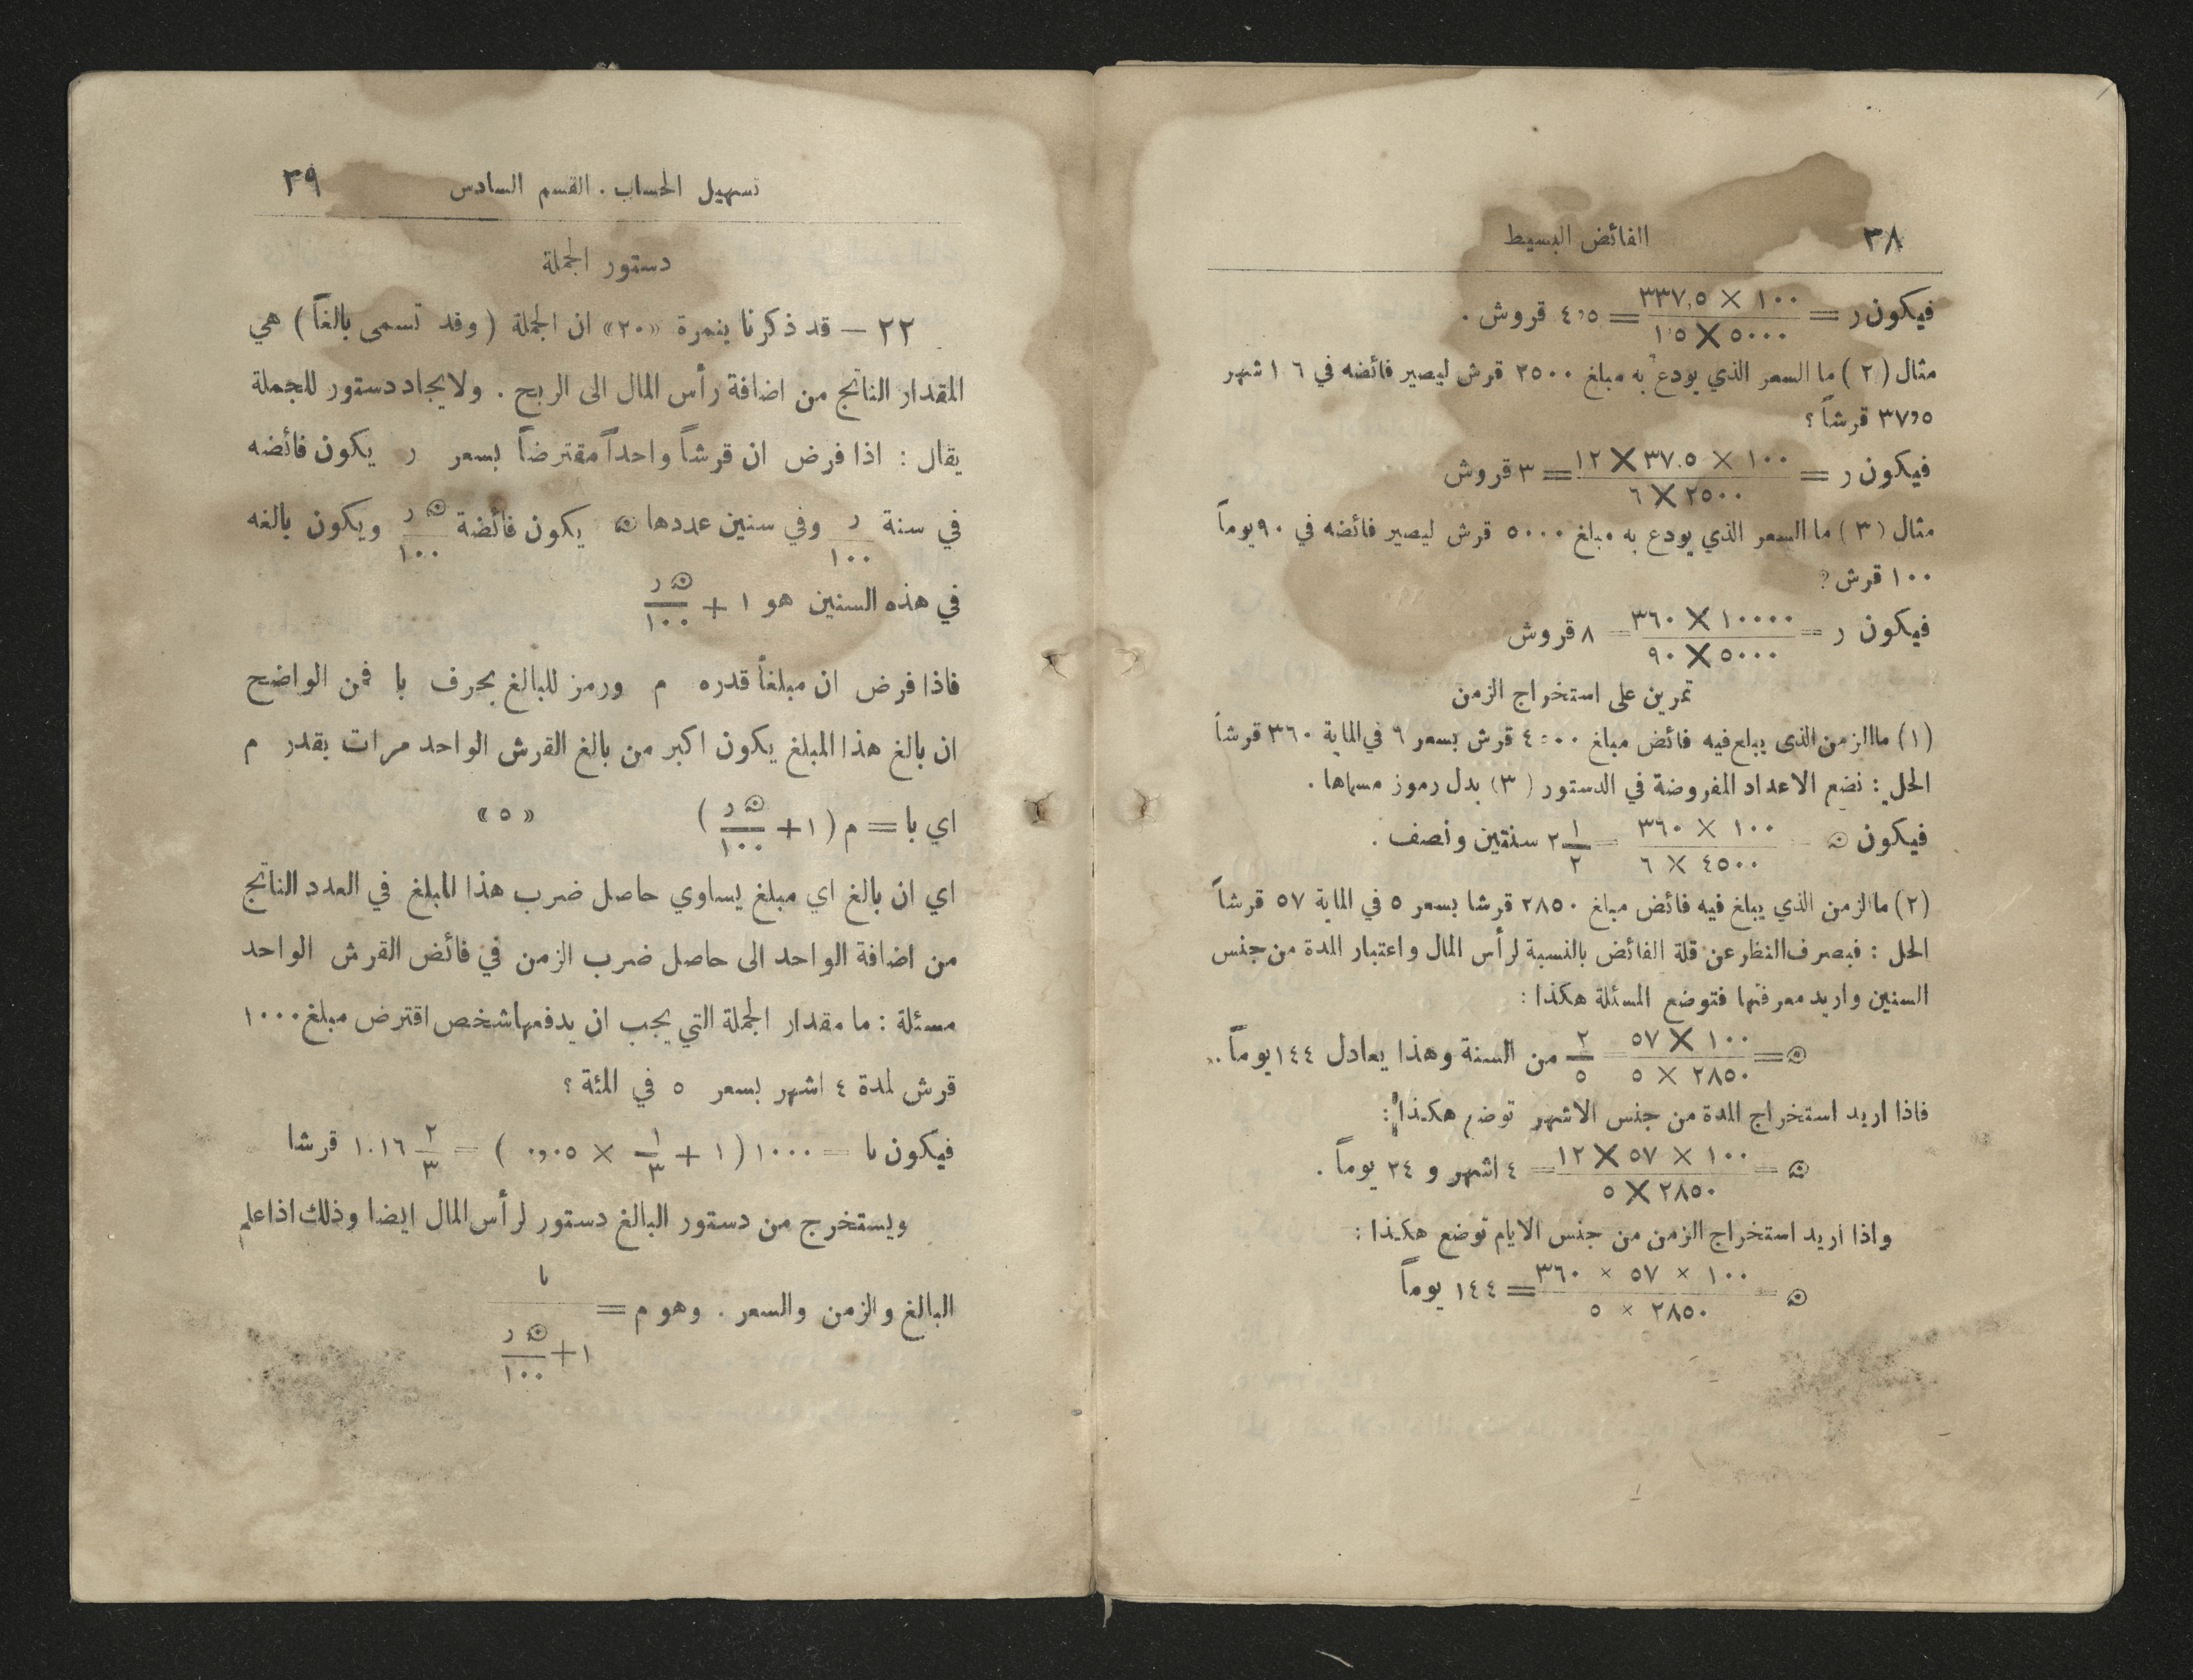 ٣٨ الفائض البسيط
فيكون ر = ١٠٠ × ٣٣٧,٥ / ٥٠٠٠ × ١,٥ = ٤,٥ قروش .
مثال (٢) ما السعر الذي يودع به مبلغ ٢٥٠٠ قرش ليصير فائضه في ٦ اشهر
٣٧,٥ قرشاً ؟
فيكون ر = ١٠٠ × ٣٧,٥ × ١٢ / ٢٥٠٠ × ٦ = ٣ قروش
مثال (٣) ما السعر الذي يودع به مبلغ ٥٠٠٠ قرش ليصير فائضه في ٩٠ يوماً
١٠٠ قرش ؟
فيكون ر = ١٠٠٠٠ × ٣٦٠ / ٥٠٠٠ × ٩٠ = ٨ قروش
تمرين على استخراج الزمن
(١) ما الزمن الذى يبلع فيه فائض مبلغ ٤٥٠٠ قرش بسعر ٦ في الماية ٣٦٠ قرشاً
الحل : نضع الاعداد المفروضة في الدستور (٣) بدل رموز مسماها .
فيكون ﻫ = ١٠٠ × ٣٦٠ / ٤٥٠٠ × ٦ = ٢ ١/٢ سنتين ونصف .
(٢) ما الزمن الذي يبلغ فيه فائض مبلغ ٢٨٥٠ قرشا بسعر ٥ في الماية ٥٧ قرشاً
الحل : فبصرف النظر عن قلة الفائض بالنسبة لرأس المال واعتبار المدة من جنس
السنين واريد معرفتها فتوضع المسئلة هكذا :
ﻫ = ١٠٠ × ٥٧ / ٢٨٥٠ × ٥ = ٢/٥ من السنة وهذا يعادل ١٤٤ يوماً .
فاذا اريد استخراج المدة من جنس الاشهر توضع هكذا :
ﻫ = ١٠٠ × ٥٧ × ١٢ / ٢٨٥٠ × ٥ = ٤ اشهر و ٢٤ يوماً .
واذا اريد استخراج الزمن من جنس الايام توضع هكذا :
ﻫ = ١٠٠ × ٥٧ × ٣٦٠ / ٢٨٥٠ × ٥ = ١٤٤ يوماً
تسهيل الحساب . القسم السادس ٣٩
دستور الجملة
٢٢ – قد ذكرنا بنمرة «٢٠» ان الجملة ( وقد تسمى بالغاً ) هي
المقدار الناتج من اضافة رأس المال الى الربح . ولايجاد دستور للجملة
يقال : اذا فرض ان قرشاً واحداً مقترضاً بسعر ر يكون فائضه
في سنة ر/١٠٠ وفي سنين عددها ﻫ يكون فائضة ﻫ ر/١٠٠ ويكون بالغه
في هذه السنين هو ١ + ﻫ ر/١٠٠
فاذا فرض ان مبلغاً قدره م ورمز للبالغ بحرف با فمن الواضح
ان بالغ هذا المبلغ يكون اكبر من بالغ القرش الواحد مرات بقدر م
اي با = م ( ١ + ﻫ ر/١٠٠ ) «٥»
اي ان بالغ اي مبلغ يساوي حاصل ضرب هذا المبلغ في العدد الناتج
من اضافة الواحد الى حاصل ضرب الزمن في فائض القرش الواحد
مسئلة : ما مقدار الجملة التي يجب ان يدفعها شخص اقترض مبلغ ١٠٠٠
قرش لمدة ٤ اشهر بسعر ٥ في المئة ؟
فيكون با = ١٠٠٠ ( ١ + ١/٣ × ٠,٠٥ ) = ١٠١٦ ٢/٣ قرشا
ويستخرج من دستور البالغ دستور لرأس المال ايضا وذلك اذا علم
البالغ والزمن والسعر . وهو م = با / ١ + ﻫ ر/١٠٠